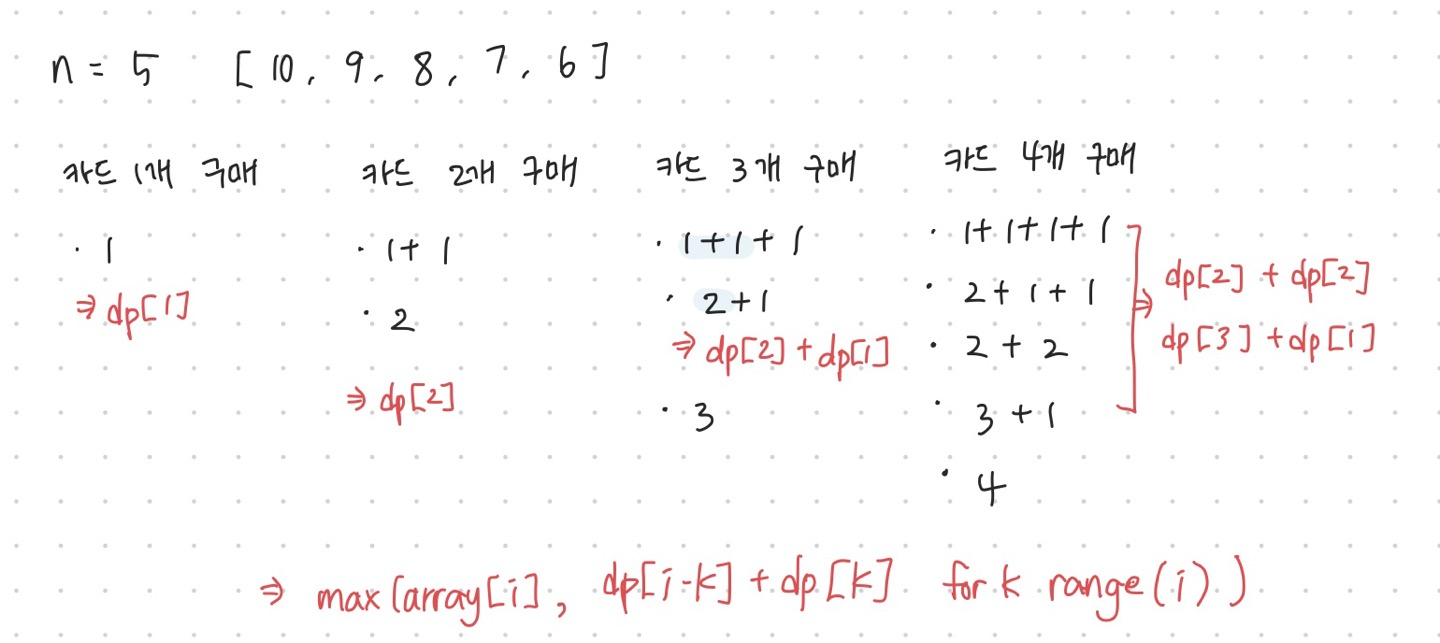 n = 5 [ 10, 9, 8, 7, 6 ]
카드 1개 구매
· 1
⇒ dp[1]
카드 2개 구매
· 1 + 1
· 2
⇒ dp[2]
카드 3개 구매
· 1 + 1 + 1
· 2 + 1
⇒ dp[2] + dp[1]
· 3
카드 4개 구매
· 1 + 1 + 1 + 1
· 2 + 1 + 1
· 2 + 2
· 3 + 1
⇒ dp[2] + dp[2]
dp[3] + dp[1]
· 4
⇒ max(array[i], dp[i-k] + dp[k] for k range(i))